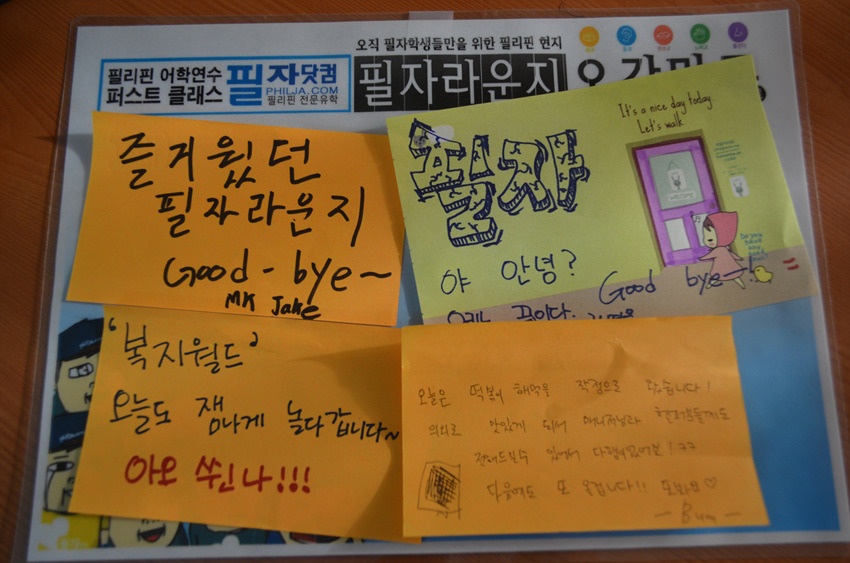 오직 필자학생들만을 위한 필리핀 현지
필리핀 어학연수
퍼스트 클래스
필자닷컴
PHILJA.COM
필리핀 전문유학
필자라운지
즐거웠던
필자라운지
Good - bye~
MK Jake
필자
It's a nice day today.
Let's walk
WELCOME
야 안녕?
Good bye~!
우리는 끝이다.
'복지월드'
오늘도 잼나게 놀다갑니다~
아오 씐나!!!
오늘은 떡볶이 해먹을 작정으로 왔습니다!
의외로 맛있게 되서 매니저님과
있어서 다행이었어요!ㅋㅋ
다음에도 또 올겁니다!! 또봐요♡
- Bum -